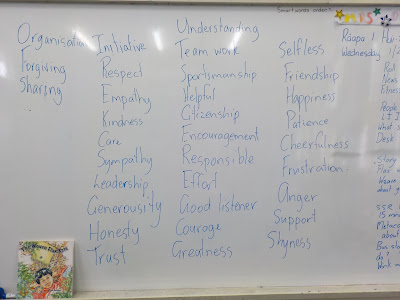 Understanding
Organisation
Forgiving
Sharing
Initiative
Respect
Empathy
Kindness
Care
Sympathy
Leadership
Generousity
Honesty
Trust
Team work
Sportsmanship
Helpful
Citizenship
Encouragement
Responsible
Effort
Good listener
Courage
Greatness
Selfless
Friendship
Happiness
Patience
Cheerfulness
Frustration
Anger
Support
Shyness
Wednesday